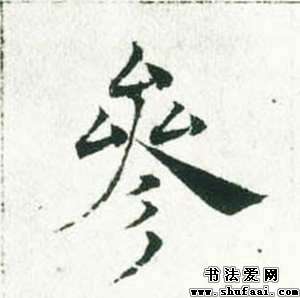 參
书法爱网
www.shufaai.com